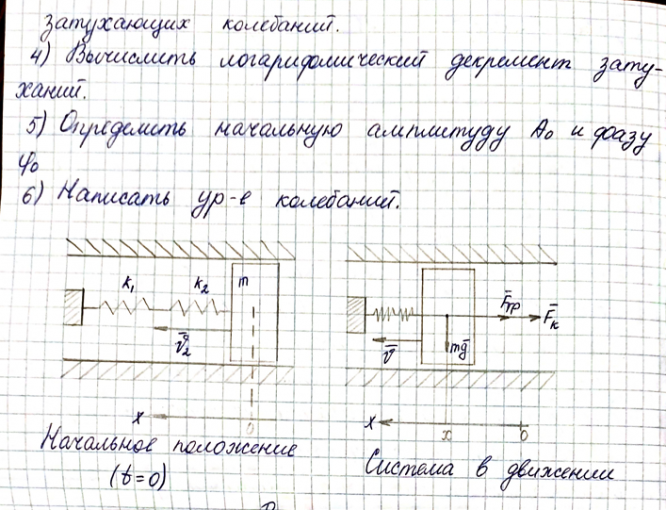 затухающих колебаний.
4) Вычислить логарифмический декремент зату-
ханий.
5) Определить начальную амплитуду A₀ и фазу
φ₀
6) Написать ур-е колебаний.
k₁ k₂ m
F̄тр F̄k
v̄₂
v̄ mḡ
x 0
x x 0
Начальное положение
(t=0)
Система в движении